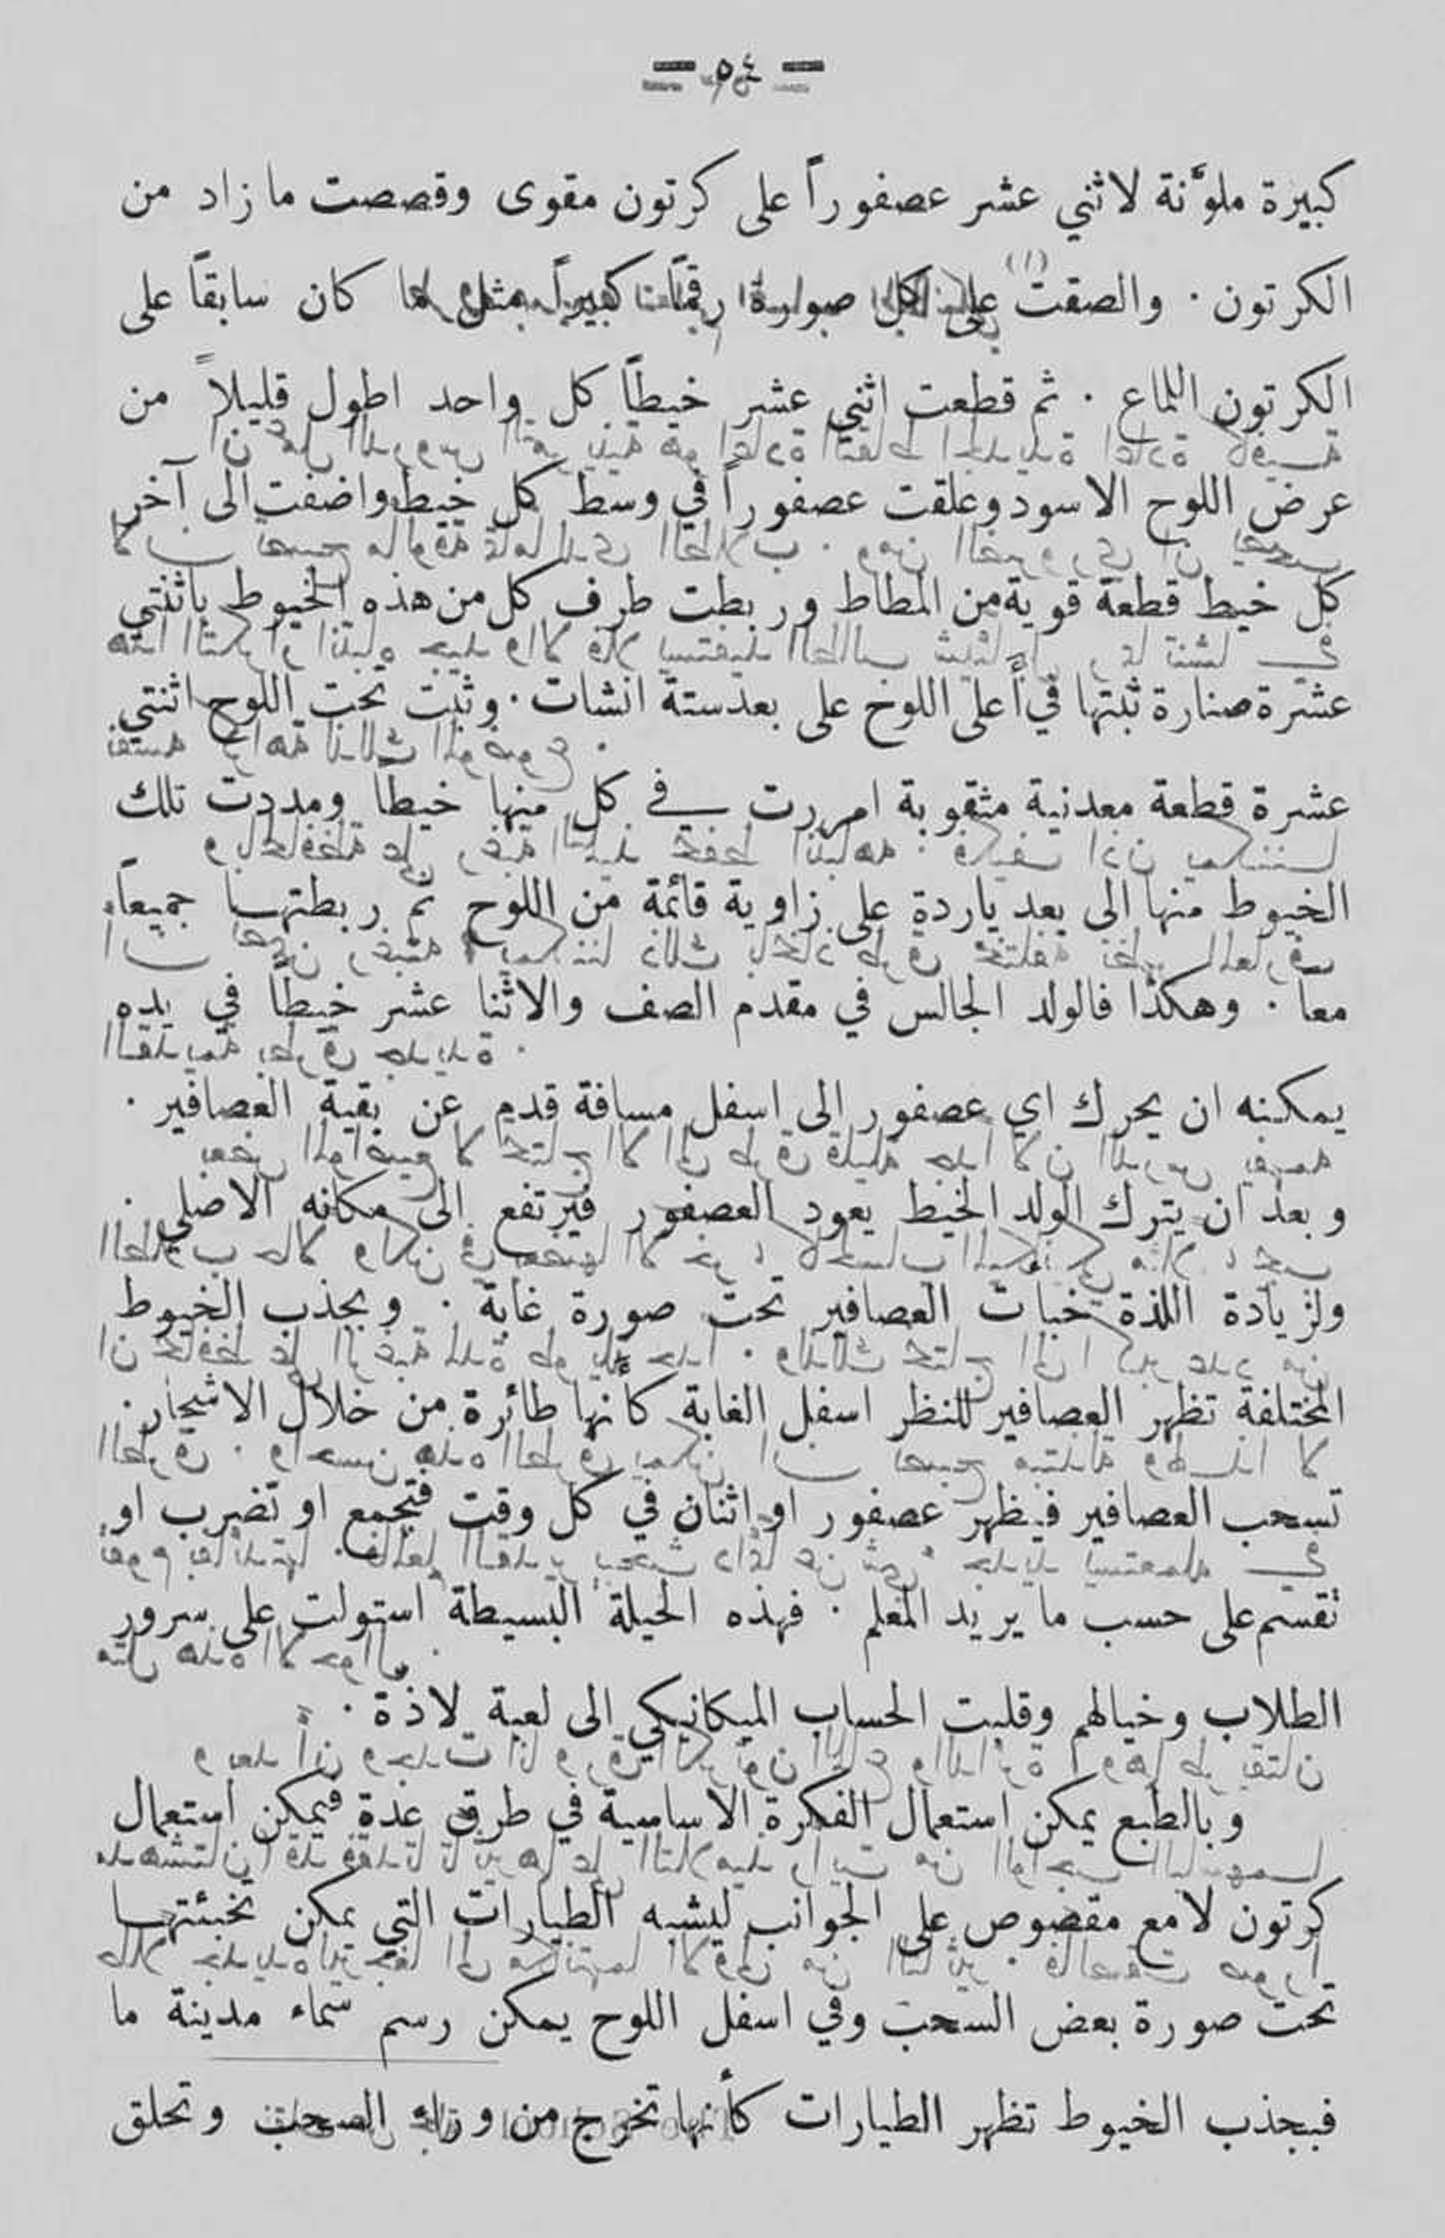 — ٥٤ —
كبيرة ملوَّنة لاثني عشر عصفوراً على كرتون مقوى وقصصت ما زاد من
الكرتون . والصقت على كل صورة رقماً كبيراً مثل ما كان سابقاً على
الكرتون اللماع . ثم قطعت اثني عشر خيطاً كل واحد اطول قليلاً من
عرض اللوح الاسود وعلقت عصفوراً في وسط كل خيط واضفت الى آخر
كل خيط قطعة قوية من المطاط وربطت طرف كل من هذه الخيوط باثنتي
عشرة صنارة ثبتها في أعلى اللوح على بعد ستة انشات . وثبت تحت اللوح اثنتي
عشرة قطعة معدنية مثقوبة امررت في كل منها خيطاً ومددت تلك
الخيوط منها الى بعد ياردة على زاوية قائمة من اللوح ثم ربطتها جميعاً
معاً . وهكذا فالولد الجالس في مقدم الصف والاثنا عشر خيطاً في يده
يمكنه ان يحرك اي عصفور الى اسفل مسافة قدم عن بقية العصافير .
وبعد ان يترك الولد الخيط يعود العصفور فيرتفع الى مكانه الاصلي .
ولزيادة اللذة خبات العصافير تحت صورة غابة . وبجذب الخيوط
المختلفة تظهر العصافير للنظر اسفل الغابة كأنها طائرة من خلال الاشجار .
تسحب العصافير فيظهر عصفور او اثنان في كل وقت فتجمع او تضرب او
تقسم على حسب ما يريد المعلم . فهذه الحيلة البسيطة استولت على سرور
الطلاب وخيالهم وقلبت الحساب الميكانيكي الى لعبة لاذة .
وبالطبع يمكن استعمال الفكرة الاساسية في طرق عدة فيمكن استعمال
كرتون لامع مقصوص على الجوانب ليشبه الطيارات التي يمكن تخبئتها
تحت صورة بعض السحب وفي اسفل اللوح يمكن رسم سماء مدينة ما
فبجذب الخيوط تظهر الطيارات كأنها تخرج من وراء السحب وتحلق